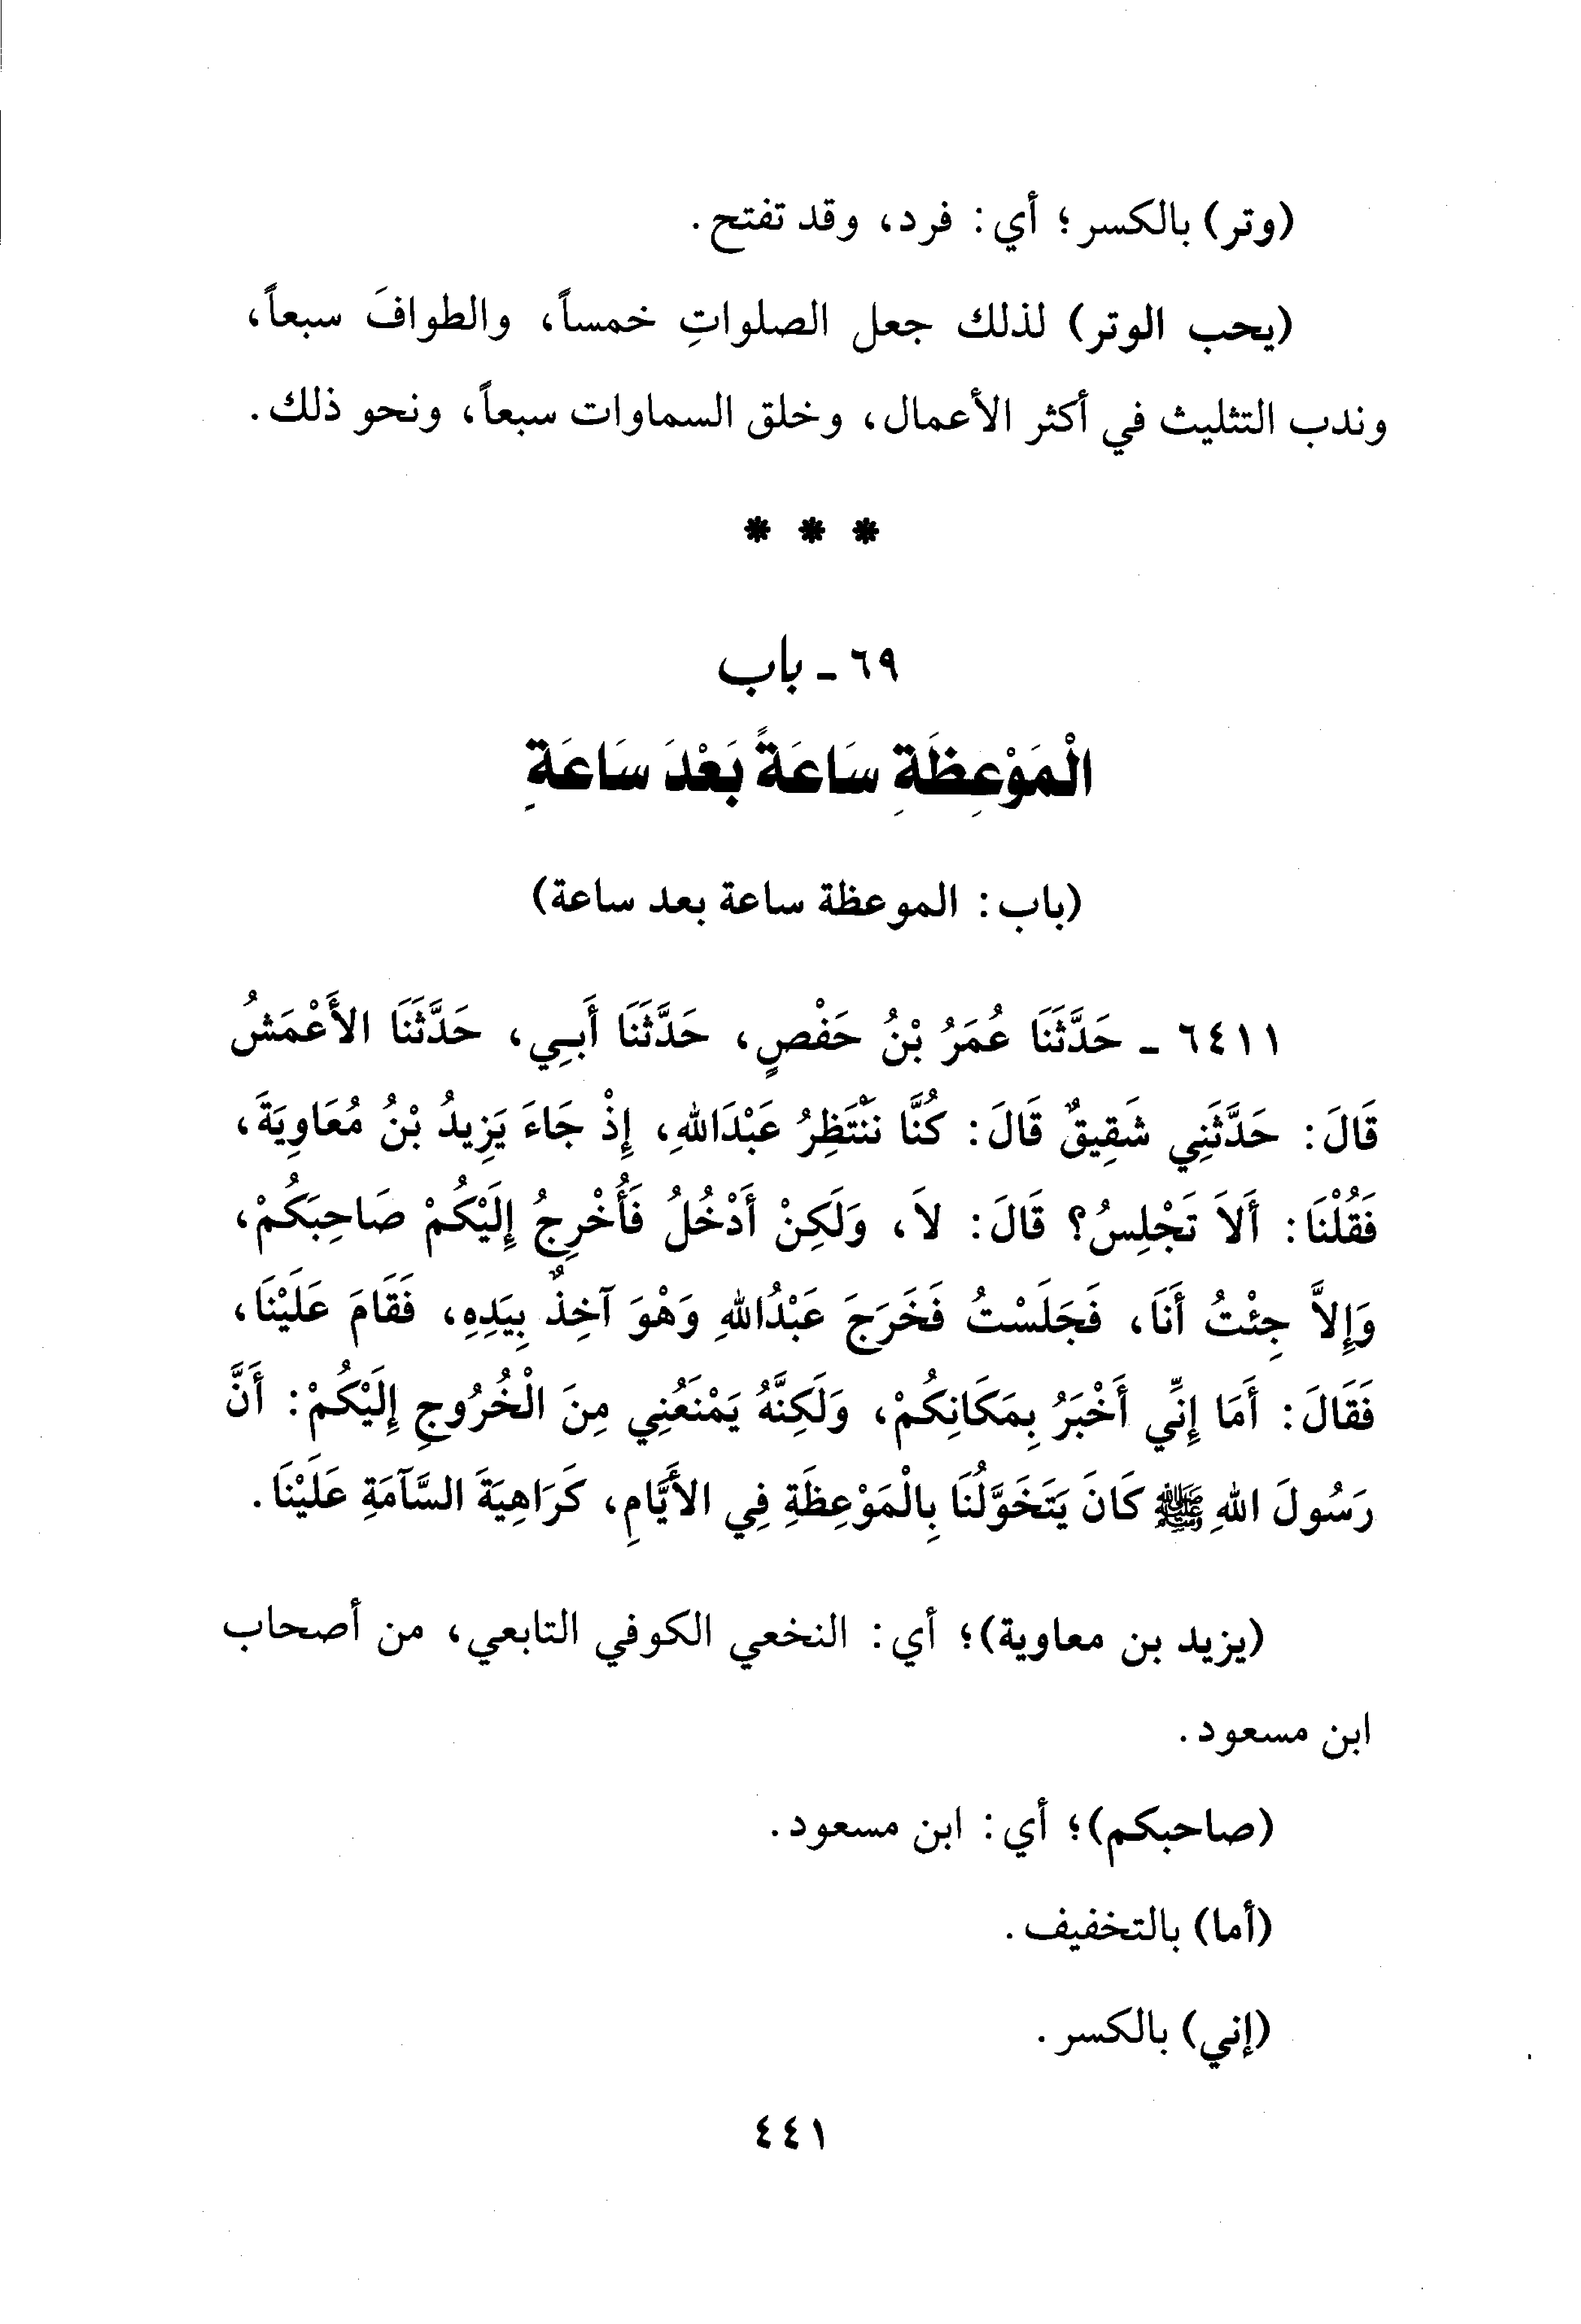 (وتر) بالكسر؛ أي: فرد، وقد تفتح.
(يحب الوتر) لذلك جعل الصلواتِ خمساً، والطوافَ سبعاً،
وندب التثليث في أكثر الأعمال، وخلق السماوات سبعاً، ونحو ذلك.
* * *
٦٩ - باب
الْمَوْعِظَةِ سَاعَةً بَعْدَ سَاعَةٍ
(باب: الموعظة ساعة بعد ساعة)
٦٤١١ - حَدَّثَنَا عُمَرُ بْنُ حَفْصٍ، حَدَّثَنَا أَبِي، حَدَّثَنَا الأَعْمَشُ
قَالَ: حَدَّثَنِي شَقِيقٌ قَالَ: كُنَّا نَنْتَظِرُ عَبْدَاللهِ، إِذْ جَاءَ يَزِيدُ بْنُ مُعَاوِيَةَ،
فَقُلْنَا: أَلاَ تَجْلِسُ؟ قَالَ: لاَ، وَلَكِنْ أَدْخُلُ فَأُخْرِجُ إِلَيْكُمْ صَاحِبَكُمْ،
وَإِلاَّ جِئْتُ أَنَا، فَجَلَسْتُ فَخَرَجَ عَبْدُاللهِ وَهْوَ آخِذٌ بِيَدِهِ، فَقَامَ عَلَيْنَا،
فَقَالَ: أَمَا إِنِّي أَخْبَرُ بِمَكَانِكُمْ، وَلَكِنَّهُ يَمْنَعُنِي مِنَ الْخُرُوجِ إِلَيْكُمْ: أَنَّ
رَسُولَ اللهِ ﷺ كَانَ يَتَخَوَّلُنَا بِالْمَوْعِظَةِ فِي الأَيَّامِ، كَرَاهِيَةَ السَّآمَةِ عَلَيْنَا.
(يزيد بن معاوية)؛ أي: النخعي الكوفي التابعي، من أصحاب
ابن مسعود.
(صاحبكم)؛ أي: ابن مسعود.
(أما) بالتخفيف.
(إني) بالكسر.
٤٤١